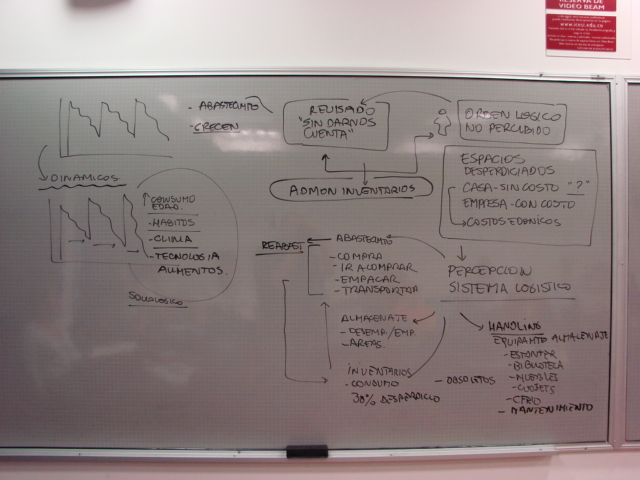 RESERVA DE
VIDEO BEAM
www.icesi.edu.co
- ABASTECMTO
- CRECEN
DINAMICOS
CONSUMO
EDAD.
- HABITOS
- CLIMA
- TECNOLOGIA
ALIMENTOS.
SOCIOLOGICO
REVISADO
"SIN DARNOS
CUENTA"
ORDEN LOGICO
NO PERCIBIDO
ADMON INVENTARIOS
ESPACIOS
DESPERDICIADOS
CASA - SIN COSTO "?"
EMPRESA - CON COSTO
COSTOS EDONICOS
REABAST
ABASTECIMTO
- COMPRA
- IR A COMPRAR
- EMPACAR
- TRANSPORTAR
PERCEPCION
SISTEMA LOGISTICO
ALMACENATE
- DESEMP/EMP.
- AREAS.
INVENTARIOS
- CONSUMO
30% DESPERDICIO
- OBSOLETOS
HANDLING
EQUIPAMTO ALMACENAJE
- BIBLIOTECA
- MUEBLES
- CLOSETS
- MANTENIMIENTO